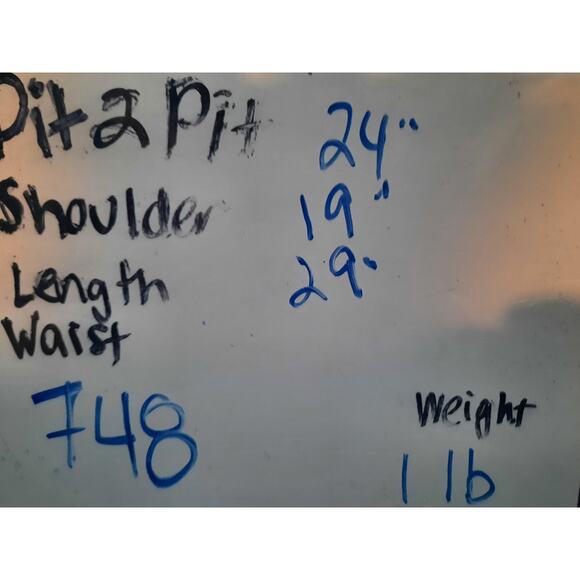 Pit2Pit 24"
Shoulder 19"
Length 29"
Waist
748
Weight
1 lb